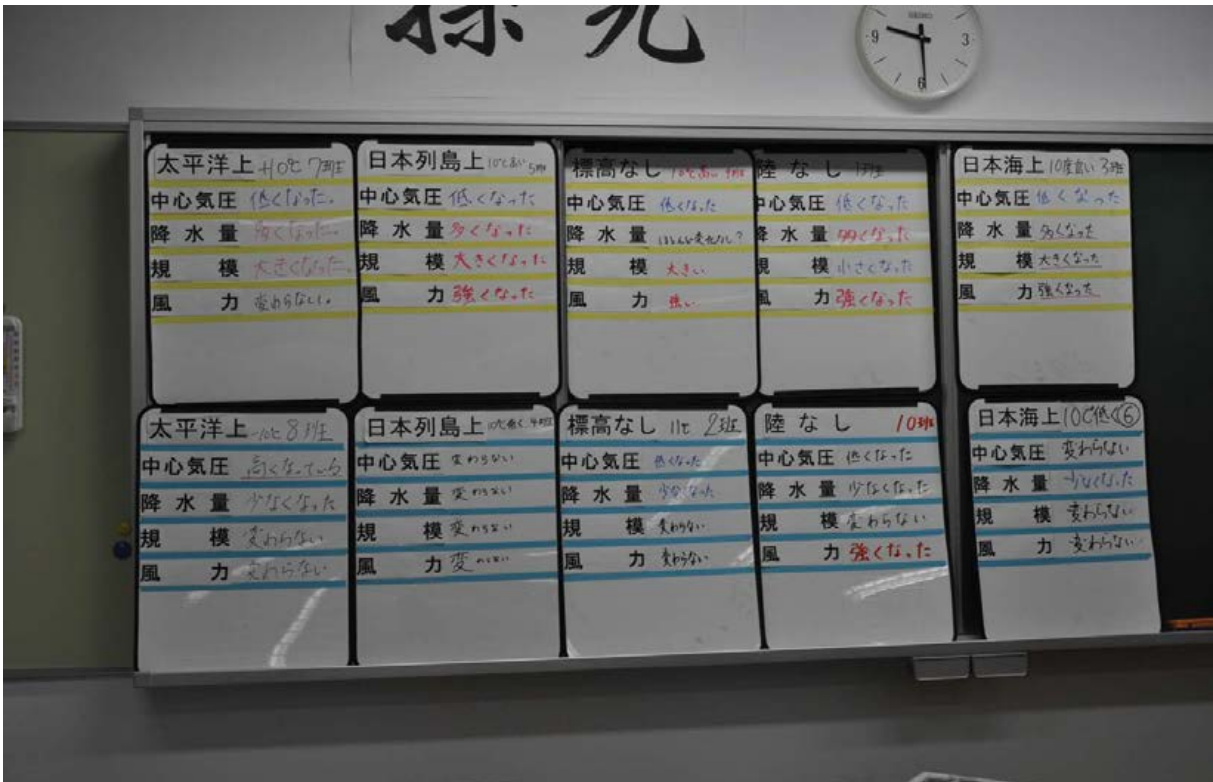 探究
SEIKO
9 3
6
太平洋上 +10℃ 7班
中心気圧 低くなった。
降水量 多くなった。
規模 大きくなった。
風力 変わらない。
日本列島上 10℃高い 5班
中心気圧 低くなった
降水量 多くなった
規模 大きくなった
風力 強くなった
標高なし 10℃高い
中心気圧 低くなった
降水量 ほとんど変化なし?
規模 大きい
風力 強い
陸なし
中心気圧 低くなった
降水量 多くなった
規模 小さくなった
風力 強くなった
日本海上 10度高い 3班
中心気圧 低くなった
降水量 多くなった
規模 大きくなった
風力 強くなった
太平洋上 -10℃ 8班
中心気圧 高くなっている
降水量 少なくなった
規模 変わらない
風力 変わらない
日本列島上 10℃低く 4班
中心気圧 変わらない
降水量 変わらない
規模 変わらない
風力 変わらない
標高なし 2班
中心気圧 低くなった
降水量 少なくなった
規模 変わらない
風力 変わらない
陸なし 10班
中心気圧 低くなった
降水量 少なくなった
規模 変わらない
風力 強くなった
日本海上 10℃低く⑥
中心気圧 変わらない
降水量 少なくなった
規模 変わらない
風力 変わらない